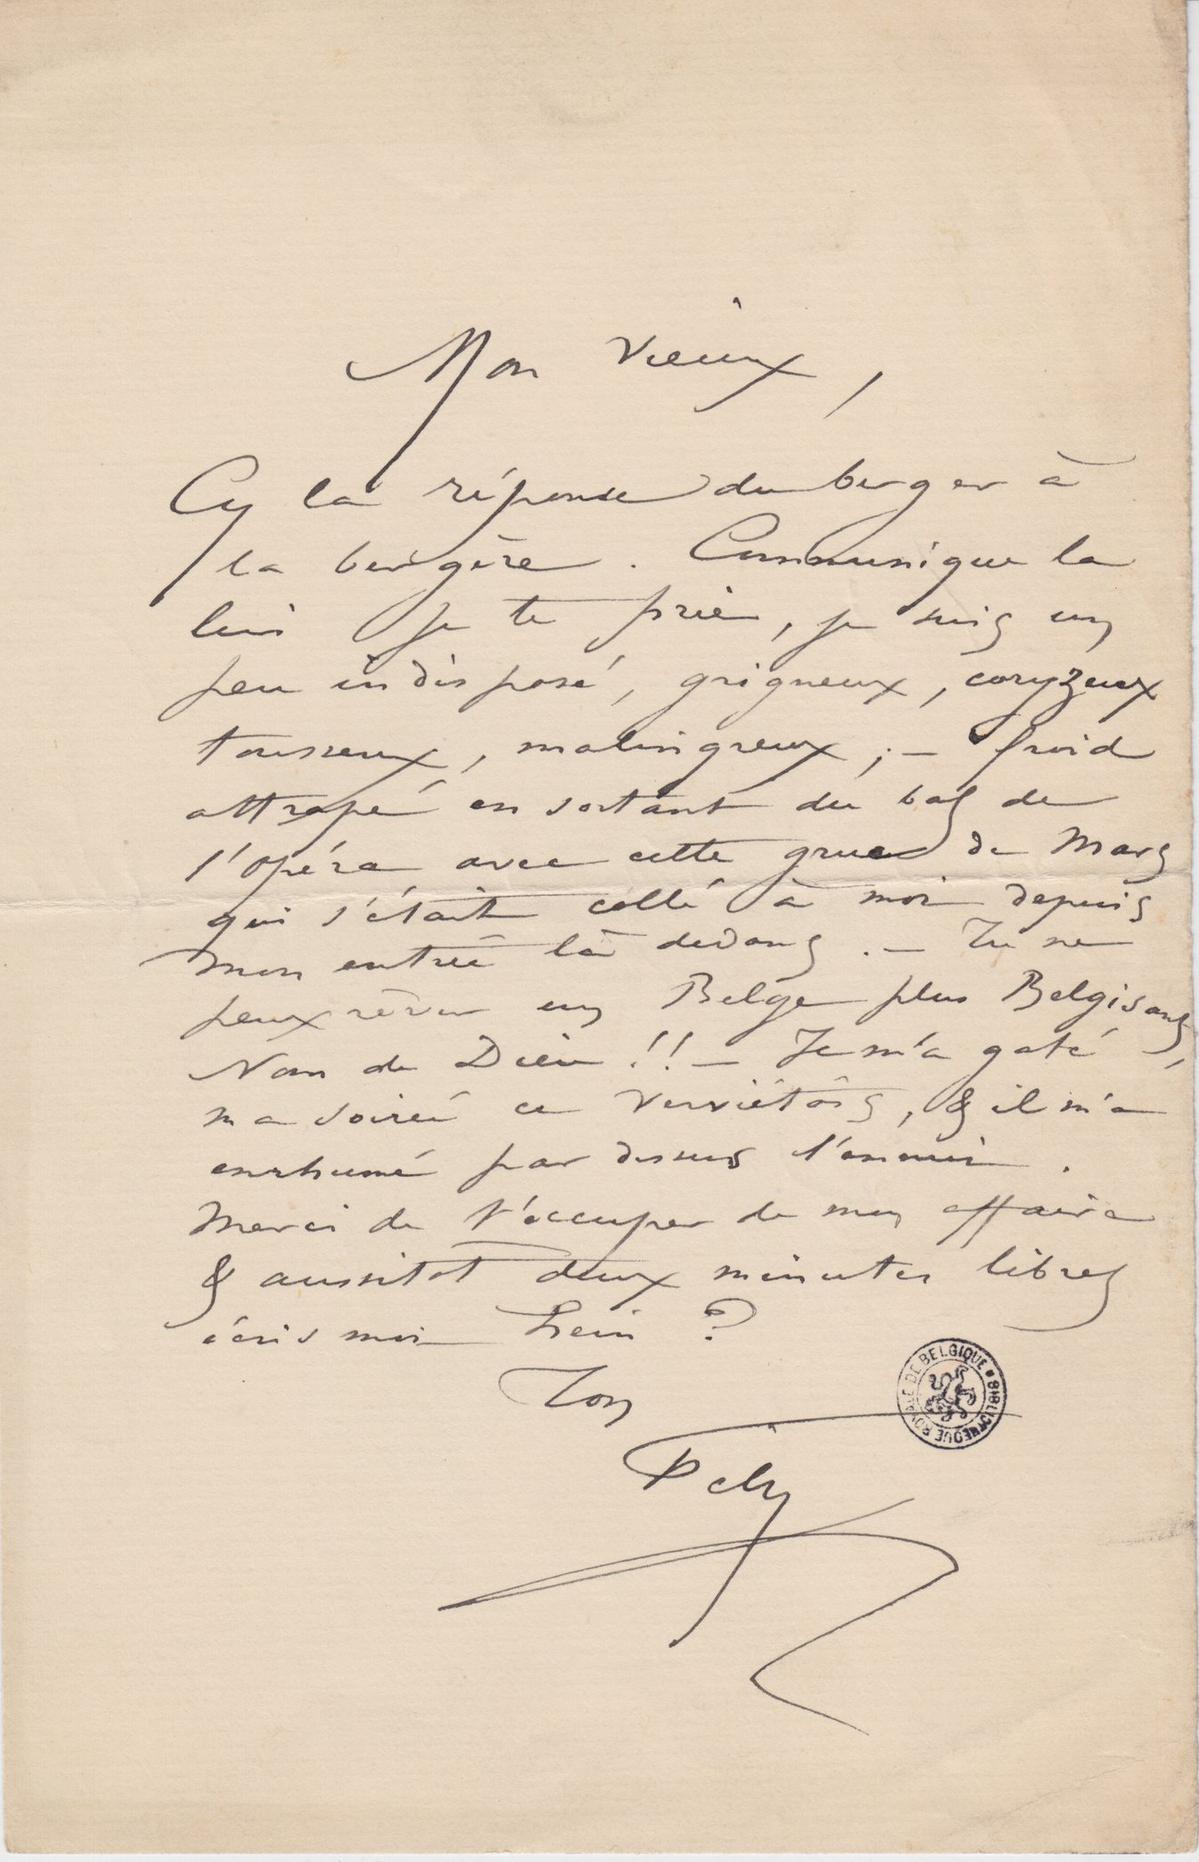 Mon vieux,
Cy la réponse du berger à
la bergère. Communique la
lui je te prie, je suis un
peu indisposé, grigneux, coryzeux
tousseux, malingreux ; – froid
attrapé en sortant du bal de
l'opéra avec cette grue de Mars
qui s'était collé à moi depuis
mon entrée là dedans. – Tu ne
peux rêver un Belge plus Belgisant,
Nom de Dieu !! – Il m'a gaté
ma soirée ce Verviétois, & il m'a
enrhumé par dessus l'ennui.
Merci de t'occuper de mon affaire
& aussitot deux minutes libres
écris moi hein ?
Ton
Fély
BIBLIOTHEQUE ROYALE DE BELGIQUE